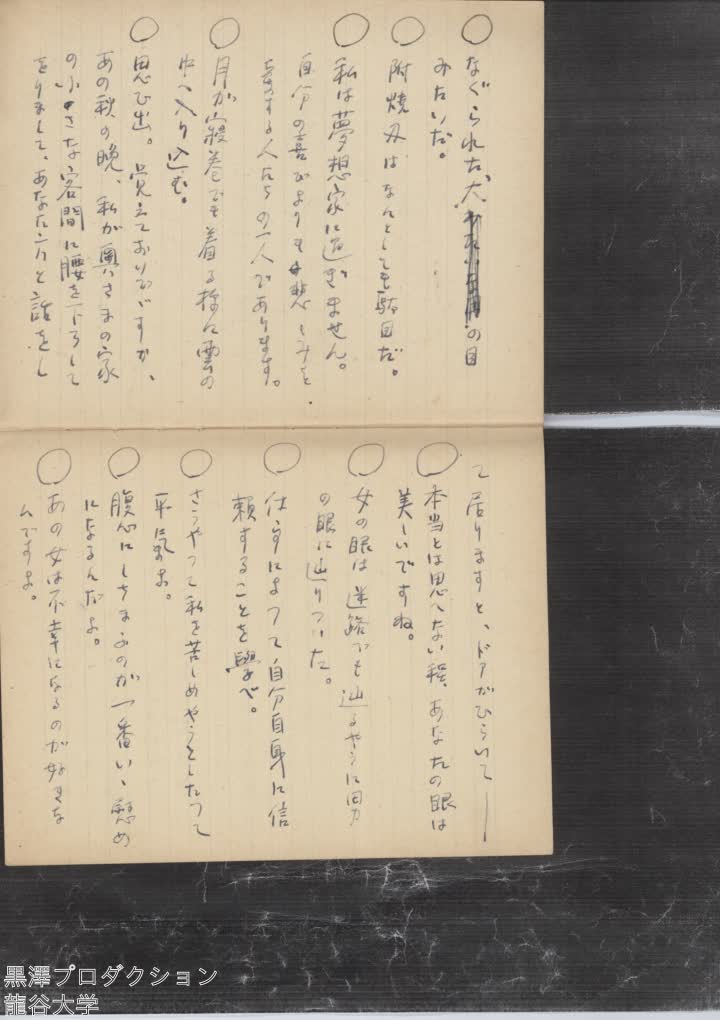 ○なぐられた犬の目
みたいだ。
○附焼刃はなんとしても駄目だ。
○私は夢想家に過ぎません。
自分の喜びよりも悲しみを
愛する人たちの一人であります。
○月が寝巻でも着る様に雲の
中へ入り込む。
○思ひ出。覚えておりですか、
あの秋の晩、私が奥さまの家
の小さな客間に腰を下ろして
をりまして、あなた方と話をし
て居りますと、ドアがひらいて──
○本当とは思へない程、あなたの眼は
美しいですね。
○女の眼は迷路でも辿るやうに男
の眼に辿りついた。
○仕事によつて自分自身に信
頼することを學べ。
○さうやつて私を苦しめやうとしたつて
平気よ。
○腹心にしちまふのが一番いゝ慰め
になるんだよ。
○あの女は不幸になるのが好きな
んですよ。
黒澤プロダクション
龍谷大学